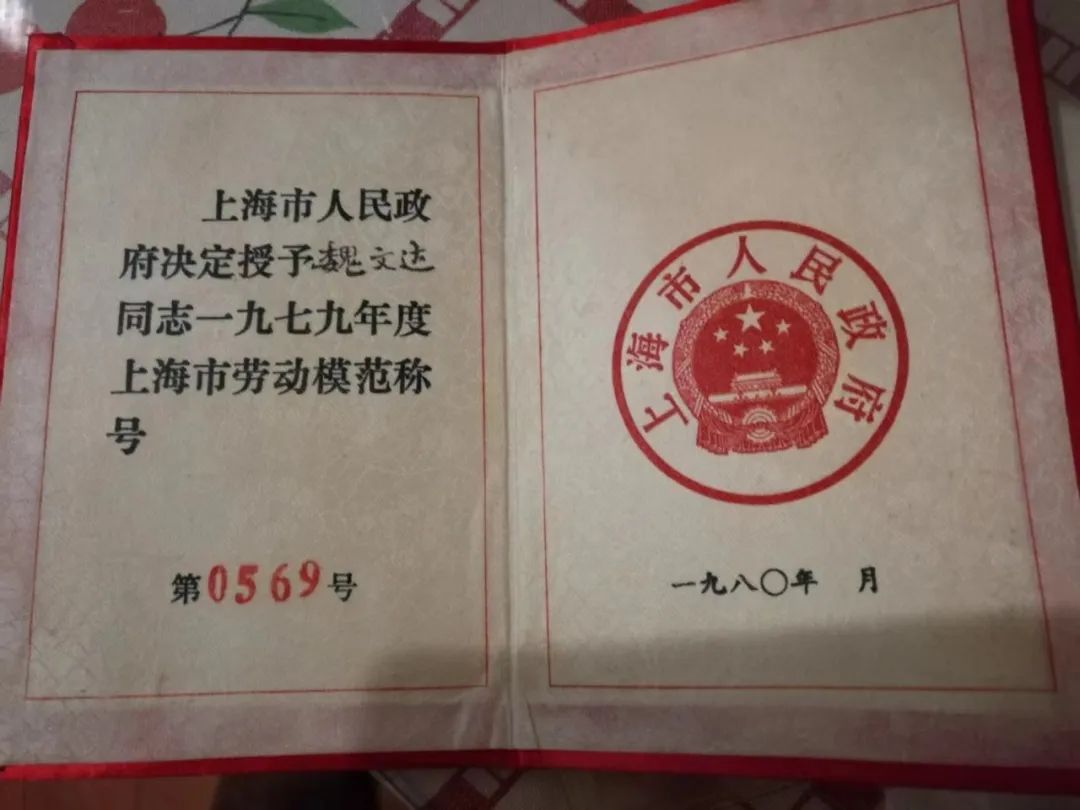 上海市人民政
府决定授予魏文达
同志一九七九年度
上海市劳动模范称
号
第0569号
上海市人民政府
一九八〇年 月